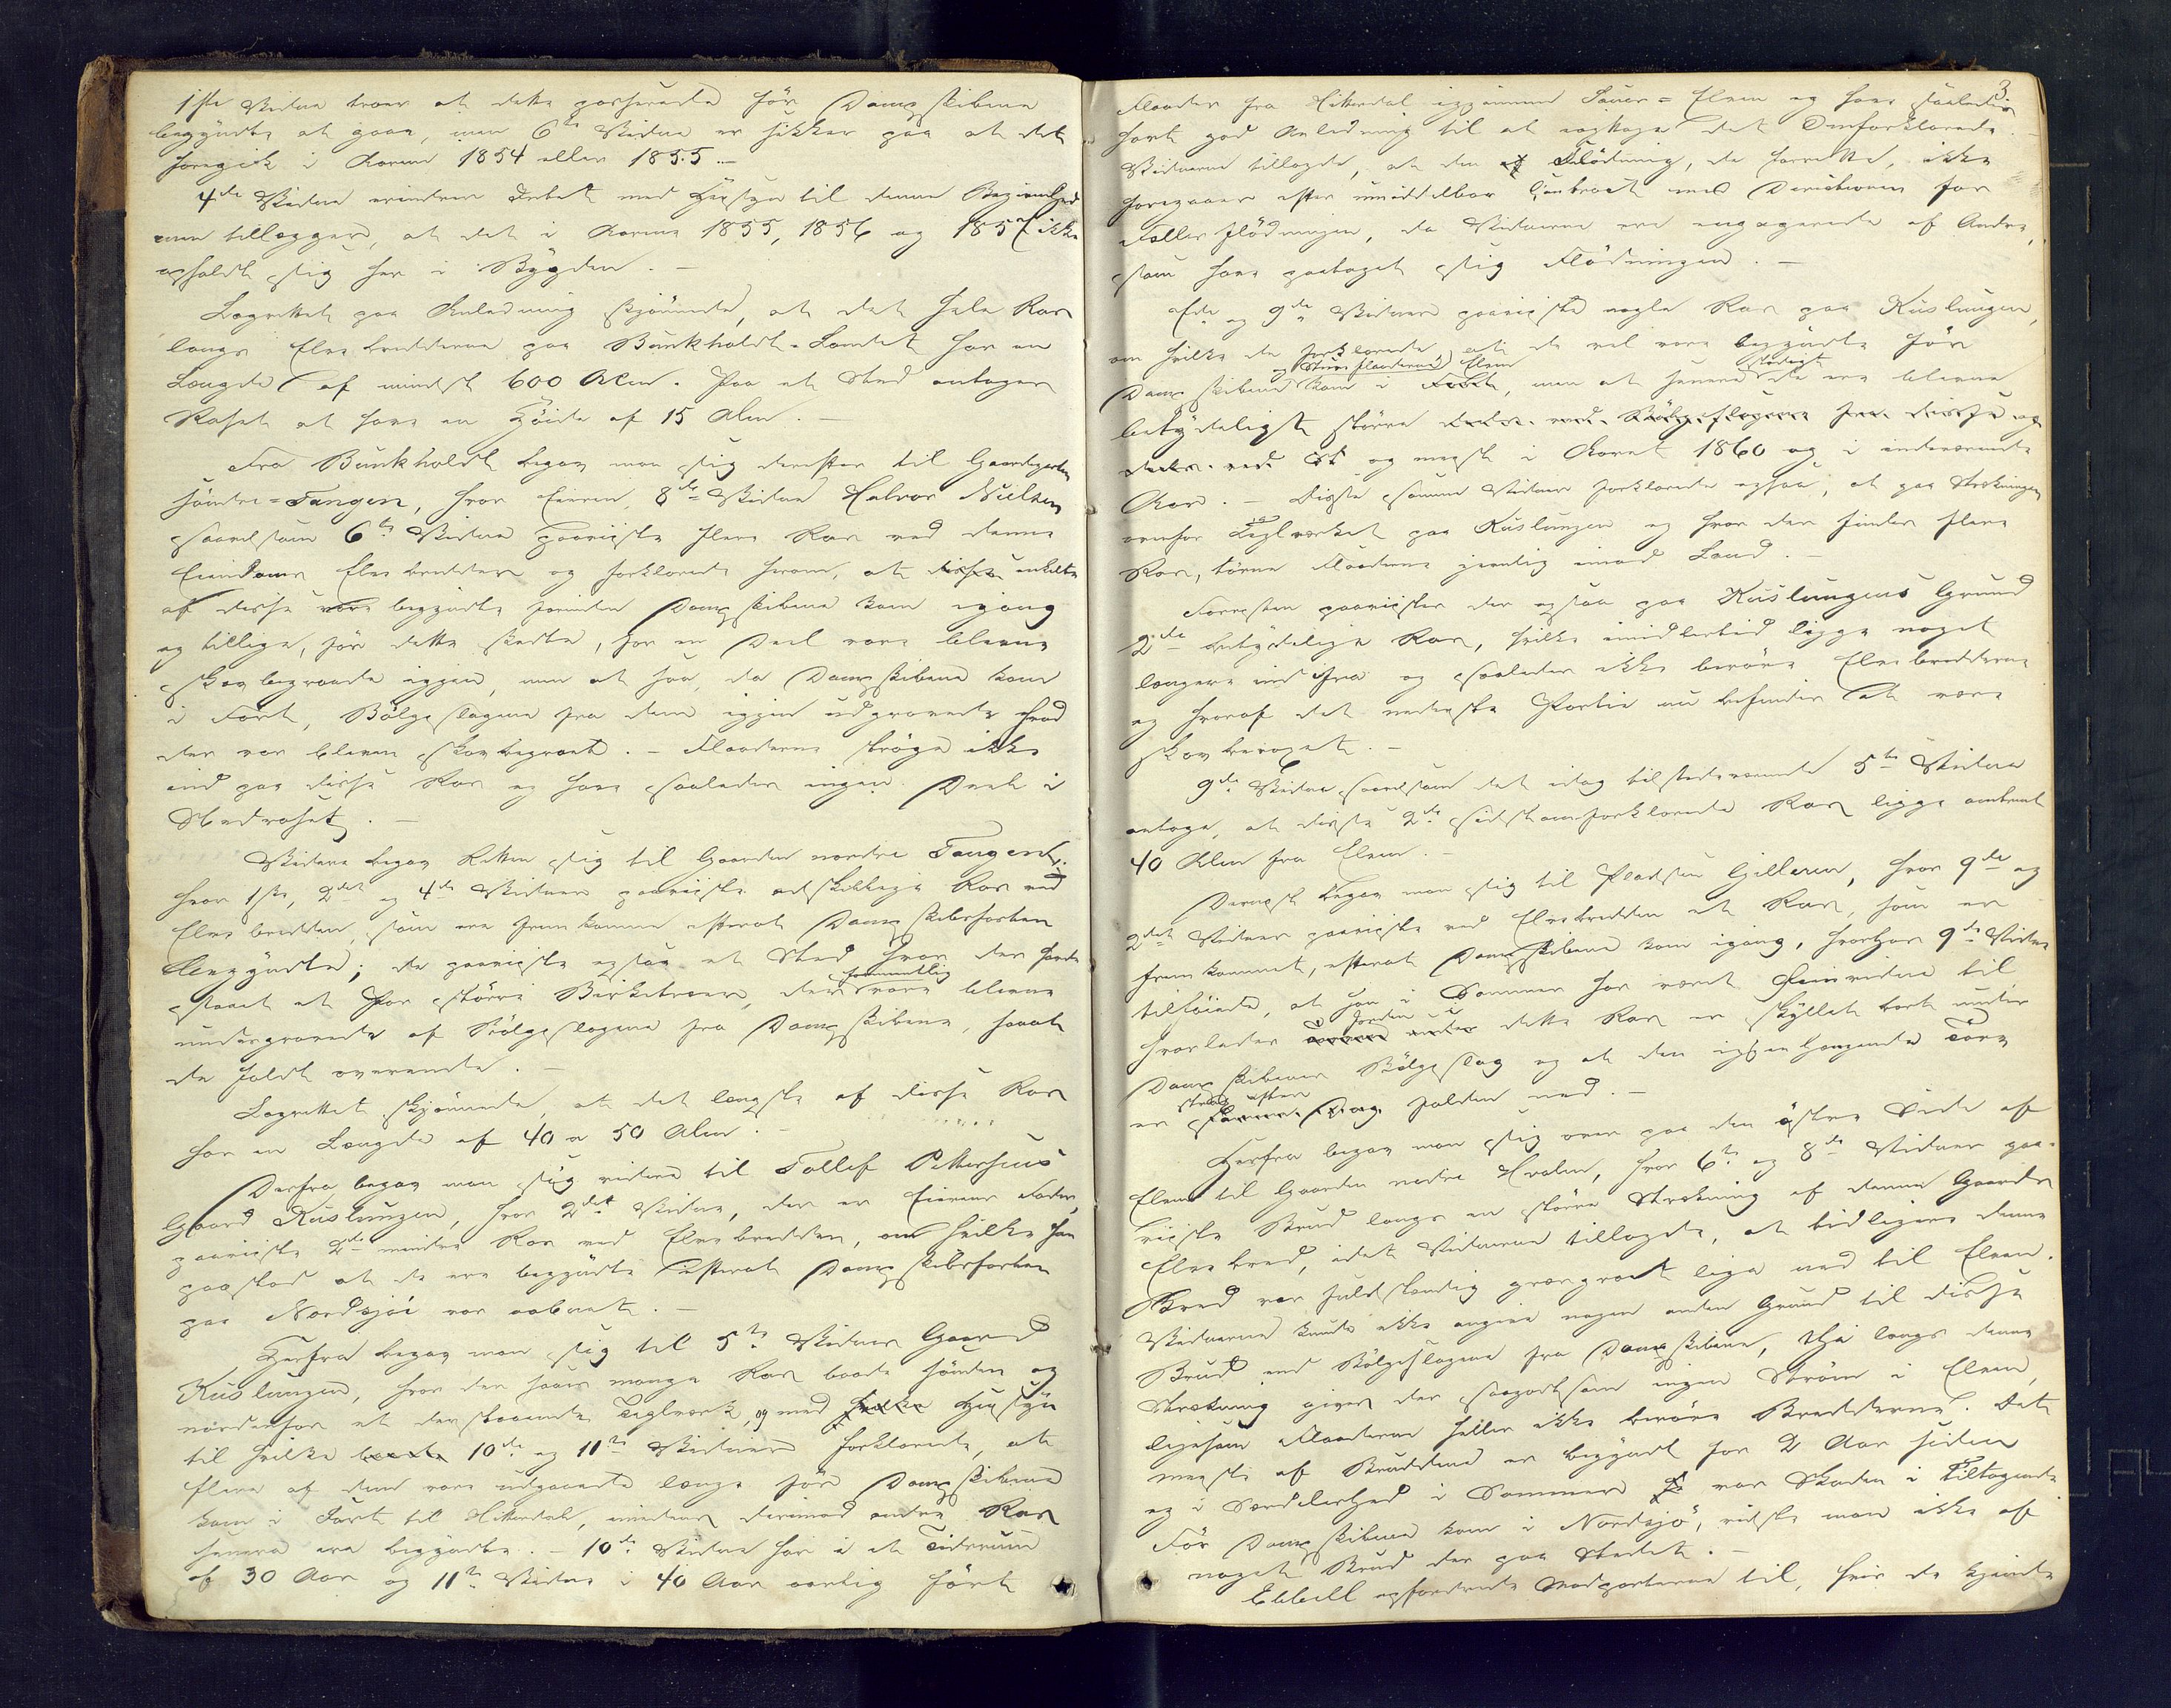 1ste Vidne troer at dette passerede før Dampskibene
begyndte at gaae, men 6te Vidne er sikker paa at det
foregik i Aarene 1854 eller 1855.-
4de Vidne erindrer Intet med Hensyn til denne Begivenhed
men tillægger, at det i Aarene 1855, 1856 og 1857 ikke
opholdt sig her i Bygden.-
Lagrettet paa Anledning skjønnede, at det hele Ras
langs Elvebredderne paa Bunkholdt-Landet har en
Længde af mindst 600 Alen. Paa et Sted antages
Raset at have en Høide af 15 Alen.-
Fra Bunkholdt begav man sig derefter til Gaardparten
søndre-Tangen, hvor Eieren, 8de Vidne Halvor Nielsen
saavelsom 6te Vidne paaviste flere Ras ved denne
Eiendoms Elvebredder og forklarede herom, at disse enkelte
af disse vare begyndte forinden Dampskibene kom igang
og tillige, før dette skedte, for en Deel vare blevne
skovbegroede igjen, men at saa, da Dampskibene kom
i Fart, Bølgeslagene fra dem igjen udgravede hvad
der var bleven skovbegroet.- Flaaderne strøge ikke
ind paa disse Ras og have saaledes ingen Deel i
Udraset.-
Videre begav Retten sig til Gaarden nordre Tangen,
hvor 1ste, 2det og 4de Vidner paaviste adskillige Ras ved
Elvebredden, som ere fremkomne efterat Dampskibsfarten
begyndte; de paaviste ogsaa et Sted hvor der havde
staaet et Par større Birketræer, der formentlig vare blevne
undergravede af Bølgeslagene fra Dampskibene, saaat
de faldt overende.-
Lagrettet skjønnede, at det længste af disse Ras
har en Længde af 40 a 50 Alen.-
Derfra begav man sig videre til Tollef Pettersens
Gaard Kuslungen, hvor 2det Vidne, der er Eierens Fader,
paaviste 2de mindre Ras ved Elvebredden, om hvilke han
paastod at de ere begyndte efterat Dampskibsfarten
paa Nordsjøe var aabnet.-
Herfra begav man sig til 5te Vidnes Gaard
Kuslungen, hvor der saaes mange Ras baade sønden og
nordenfor et derstaaende Teglværk, og med hvilke Hensyn
til hvilke baade 10de og 11te Vidner forklarede, at
flere af dem vare udgaaede længe før Dampskibene
kom i Fart til Hitterdal, imedens derimod andre Ras
senere ere begyndte.- 10de Vidne har i et Tidsrum
af 30 Aar og 11te Vidne i 40 Aar aarlig ført
3
Flaader fra Hitterdal igjennem Sauer-Elven og have saaledes
havt god Anledning til at iagttage det Omforklarede.-
Vidnerne tillagde, at den af Flødning, de forrette, ikke
foregaaer efter umiddelbar Contract med Directionen for
Fællesflødningen, da Vidnerne ere engagerede af Andre,
som have paataget sig Flødningen.-
og 9de Vidner paaviste nogle Ras paa Kuslungen,
om hvilke de forklarede at de vel vare begyndte før
og Elven stadigt
Dampskibene kom i Fart, men at senere de ere blevne
betydeligt større deels ved Bølgeslagene fra disse og
deels ved at og meest i Aaret 1860 og i indeværende
Aar.- Disse samme Vidner forklarede ogsaa, at paa Strækningen
ovenfor Teglværket paa Kuslungen og hvor der findes flere
Ras, tørne Flaaderne jevnlig imod Land.-
Foresten paavistes der ogsaa paa Kuslungens Grund
2de betydelige Ras, hvilke imidlertid ligge noget
længere ind fra og saaledes ikke berøre Elvebredderne
og hvoraf det nederste Partie nu befindes at være
skovbevoxet.-
9de Vidne saavelsom det idag tilstedeværende 5te Vidne
antage, at disse 2de sidst omforklarede Ras ligge omtrent
40 Alen fra Elven.-
Dernæst begav man sig til Pladsen Gilleren, hvor 9de og
2det Vidner paaviste ved Elvebredden et Ras, som er
fremkommet, efterat Dampskibene kom igang, hvorhos 9de Vidne
tilføiede, at han i Sommer har været Øienvidne til
Jorden i
hvorledes under dette Ras er skyllet bort under
Dampskibenes Bølgeslag og at den igjenhængende Tørv
strax efter
er Dag falden ned.-
Herfra begav man sig over paa den østre Side af
Elven til Gaarden nedre Hvalen, hvor 6te og 8de Vidner paa-
viste Brud langs en større Strækning af denne Gaards
Elvebred, idet Vidnerne tillagde, at tidligere denne
Bred var fuldstændig græsgroet lige ned til Elven.
Vidnerne kunde ikke angive nogen anden Grund til disse
Brud end Bølgeslagene fra Dampskibene, thi langs denne
Strækning gives der saagodtsom ingen Strøm i Elven,
ligesom Flaaderne heller ikke berøre Bredderne. Det
meeste af Bruddene er begyndt for 2 Aar siden
og i Særdeleshed i Sommer var Skaden i Tiltagende
Før Dampskibene kom i Nordsjø, vidste man ikke af
noget Brud der paa Stedet.-
Ebbell opfordrede Modparterne til, hvis de kjendte